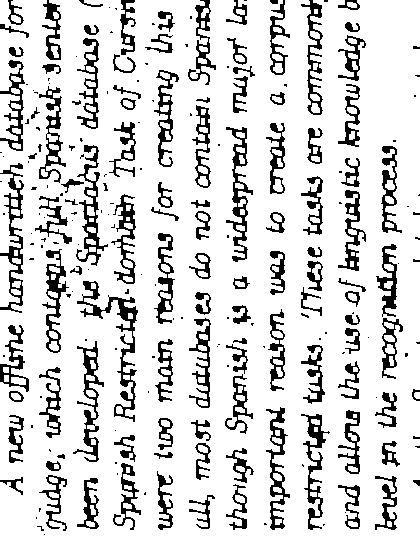 A new offline handwritten database for
guage, which contains full Spanish senten
been developed: the Spartacus database (
Spanish Restricted-domain Task of Cursiv
were two main reasons for creating this
all, most databases do not contain Spanis
though Spanish is a widespread major la
important reason was to create a corpus
restricted tasks. These tasks are commonly
and allow the use of linguistic knowledge b
level in the recognition process.